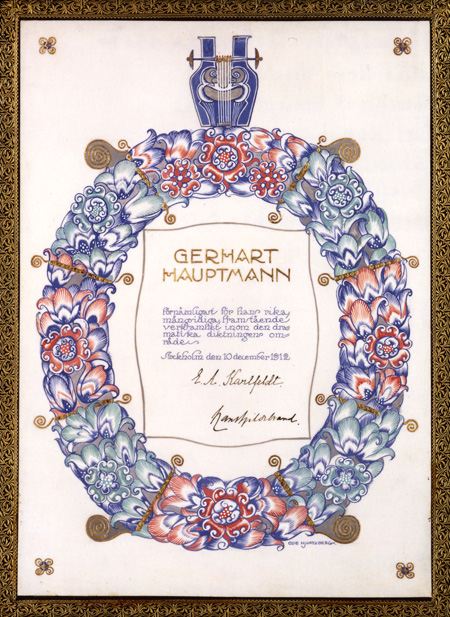 GERHART
HAUPTMANN
förnämligast för hans rika,
mångsidiga, framstående
verksamhet inom den dra-
matiska diktningens om-
råde.
Stockholm den 10 december 1912
E. A. Karlfeldt.
Hans Hildebrand.